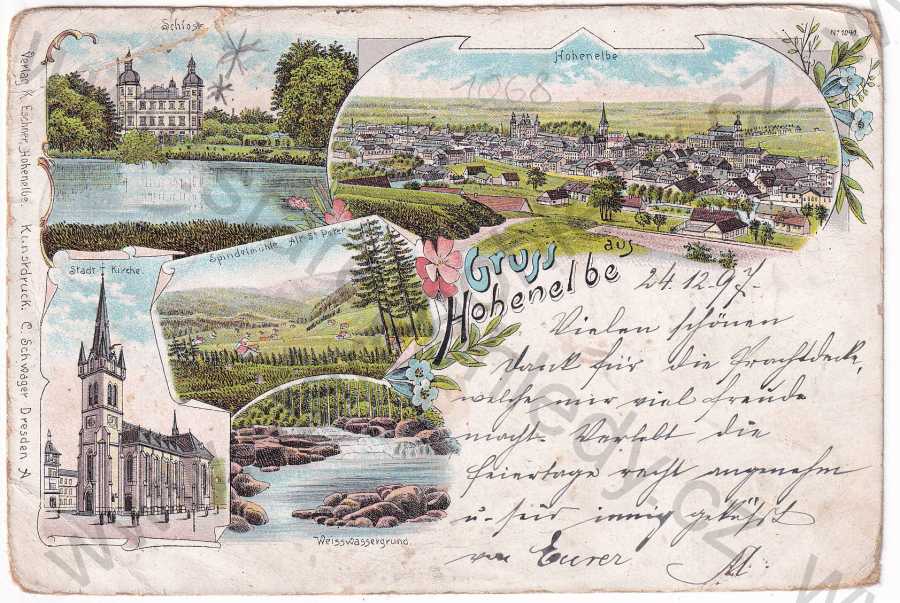 Schloss
Hohenelbe
No 1041
1068
Spindelmühle Alt-St Peter
Stadt Kirche.
Weisswassergrund.
Gruss aus
Hohenelbe
Verlag K. Eschner, Hohenelbe. Kunstdruck. C. Schwager Dresden A
24.12.97.
Vielen schönen
Dank für die Prachtdecke,
welche mir viel Freude
macht. Verlebt die
Feiertage recht angenehm
u. seid innig geküsst
von Eurer M.